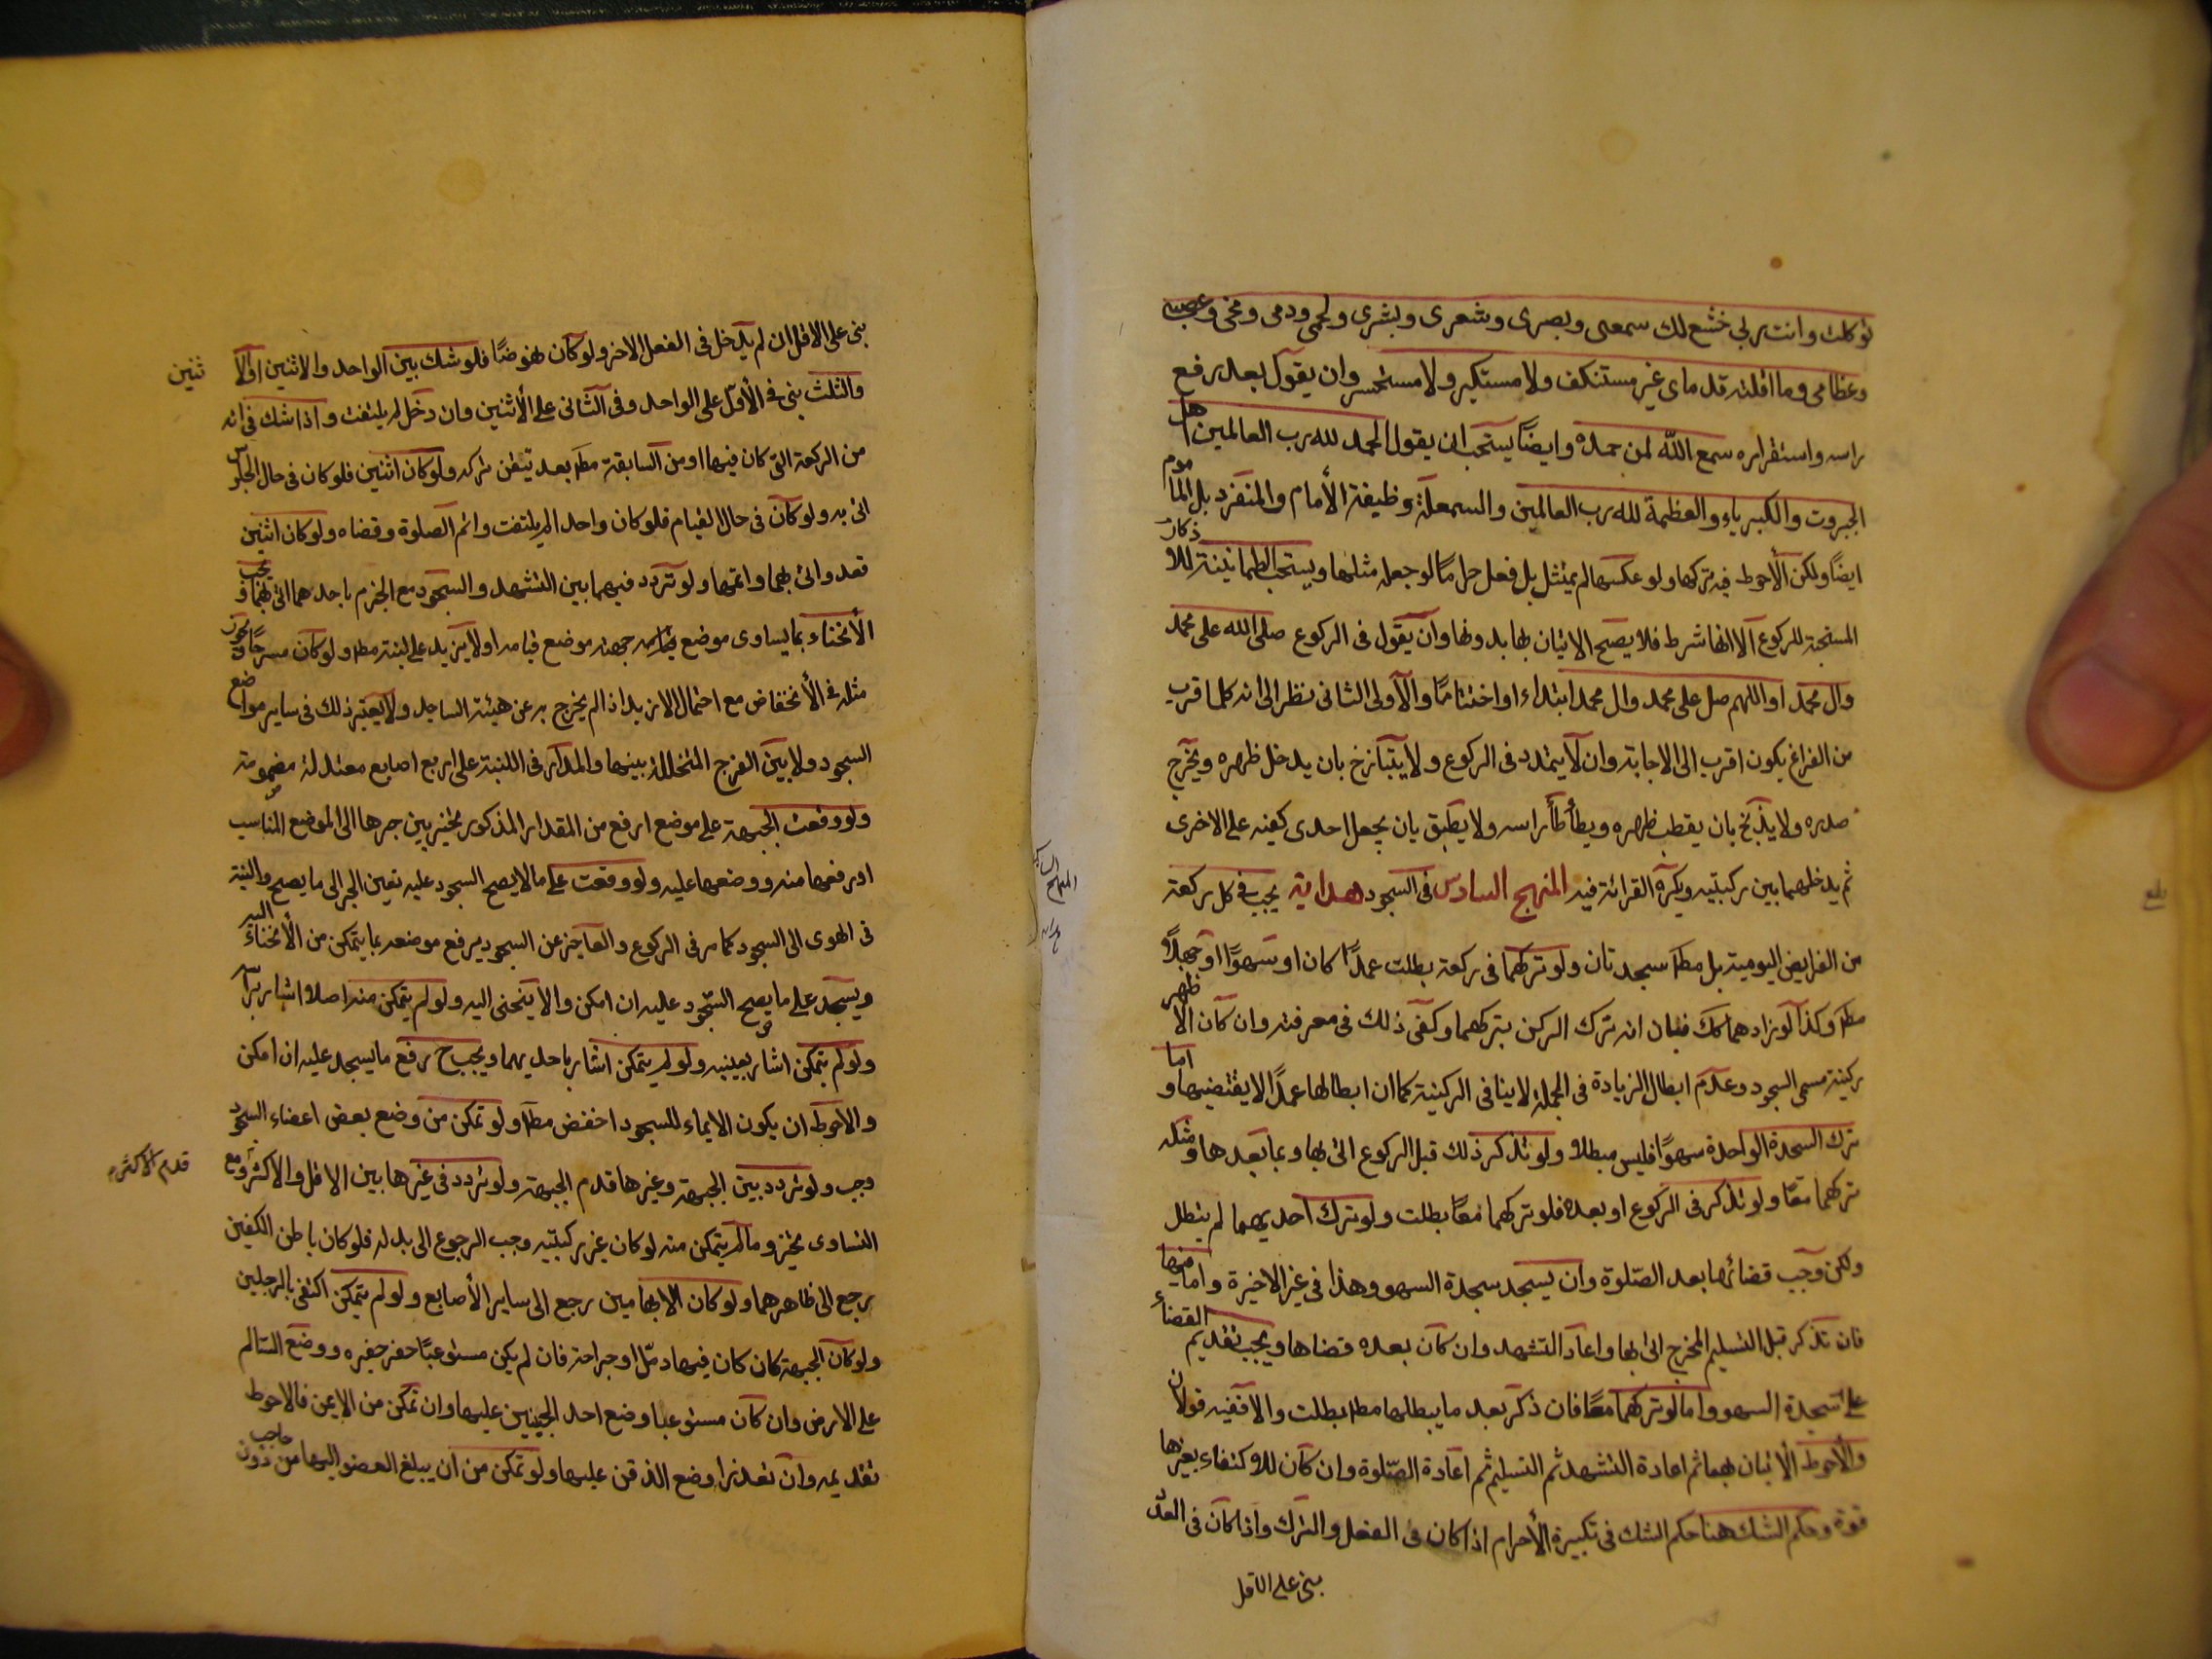 توكلت وانت ربى خشع لك سمعى وبصرى وشعرى وبشرى ولحمى ودمى ومخى وعصبى
وعظامى وما اقلته قدماى غير مستنكف ولا مستكبر ولا مستحسر وان يقول بعد رفع
راسه واستقراره سمع الله لمن حمده وايضًا يستحب ان يقول الحمد لله رب العالمين اهل
الجبروت والكبرياء والعظمة لله رب العالمين والسمعلة وظيفة الأمام والمنفرد بل المأموم
ايضًا ولكن الأحوط فيه تركها ولو عكسها لم يمتثل بل فعل حرامًا لو جعله مثلها ويستحب الطمانينة للاذكار
المستحبة للركوع الا انها شرط فلا يصح الاتيان بها بدونها وان يقول فى الركوع صلى الله على محمد
وال محمد او اللهم صل على محمد وال محمد ابتداء او اختتامًا والأولى الثانى نظر الى انه كلما قرب
من الفراغ يكون اقرب الى الاجابة وان لا يتمدد فى الركوع ولا يتبازخ بان يدخل ظهره ويخرج
صدره ولا يذبخ بان يقطب ظهره ويطأطأ راسه ولا يطبق بان يجعل احدى كفيه على الاخرى
ثم يدخلهما بين ركبتيه ويكره القرائة فيه المنهج السادس فى السجود هداية يجب فى كل ركعة
من الفرايض اليومية بل مطلقا سجدتان ولو تركهما فى ركعة بطلت عمدًا كان او سهوًا او جهلاً
مطلقا وكذا لو زادهما كك فبان انه ترك الركن بتركهما وكفى ذلك فى معرفته وان كان الاظهر
ركنية مسمى السجود وعدم ابطال الزيادة فى الجملة لا ينافى الركنية كما ان ابطالها عمدًا لا يقتضيها واما
ترك السجدة الواحدة سهوًا فليس مبطلا ولو تذكر ذلك قبل الركوع اتى بها وبما بعدها ومثله
تركهما معًا ولو تذكر فى الركوع او بعده فلو تركهما معًا بطلت ولو ترك احديهما لم يبطل
ولكن وجب قضائها بعد الصلوة وان يسجد سجدة السهو وهذا فى غير الاخيرة واما فيها
فان تذكر قبل التسليم المخرج اتى بها واعاد التشهد وان كان بعده قضاها ويجب تقديم القضاء
على سجدة السهو واما لو تركهما معًا فان ذكر بعد ما يبطلها مطلقا بطلت والا ففيه قولان
والأحوط الأتيان بهما ثم اعادة التشهد ثم التسليم ثم اعادة الصلوة وان كان للاكتفاء بغيرها
قوة وحكم الشك هنا حكم الشك فى تكبيرة الأحرام اذا كان فى الفعل والترك واذا كان فى العدد
بنى على الاقل
بلغ
بنى على الاقل ان لم يدخل فى الفعل الاخر ولو كان نهوضًا فلو شك بين الواحد والاثنين او الا
ثنين
والثلث بنى فى الأول على الواحد وفى الثانى على الأثنين وان دخل لم يلتفت واذا شك فى انه
من الركعة التى كان فيها او من السابقة مطلقا بعد تيقن تركه ولو كان اثنين فلو كان فى حال الجلوس
اتى به ولو كان فى حال القيام فلو كان واحدا لم يلتفت واتم الصلوة وقضاه ولو كان اثنين
قعد واتى بهما واتمها ولو تردد فيهما بين التشهد والسجود مع الجزم باحدهما اتى بهما ويجب
الأنحناء بما يساوى موضع جبهته موضع قيامه او لا يزيد على لبنة مطلقا ولو كان مسرحًا ويجوز
مثله فى الأنخفاض مع احتمال الازيد اذا لم يخرج به عن هيئة الساجد ولا يعتبر ذلك فى ساير مواضع
السجود ولا بين الفرج المتخللة بينها والمدار فى اللبنة على اربع اصابع معتدلة مضمومة
ولو وقعت الجبهة على موضع ارفع من المقدار المذكور تخير بين جرها الى الموضع المناسب
او رفعها منه ووضعها عليه ولو وقعت على ما لا يصح السجود عليه تعين الجر الى ما يصح والنية
فى الهوى الى السجود كما مر فى الركوع والعاجز عن السجود يرفع موضعه بما يتمكن من الأنحناء اليه
ويسجد على ما يصح السجود عليه ان امكن والا ينحنى اليه ولو لم يتمكن منه اصلا اشار براسه
ولو لم يتمكن اشار بعينيه ولو لم يتمكن اشار باحديهما ويجب ح رفع ما يسجد عليه ان امكن
والاحوط ان يكون الايماء للسجود اخفض مطلقا ولو تمكن من وضع بعض اعضاء السجود
وجب ولو تردد بين الجبهة وغيرها قدم الجبهة ولو تردد فى غيرها بين الاقل والاكثر ومع
قدم الاكثر
التساوى تخير وما لم يتمكن منه لو كان غير ركبتيه وجب الرجوع الى بدله فلو كان باطن الكفين
رجع الى ظاهرهما ولو كان الابهامين رجع الى ساير الأصابع ولو لم يتمكن اكتفى بالرجلين
ولو كان الجبهة كان كان فيها دمّل او جراحة فان لم يكن مستوعبًا حفر حفيره ووضع السالم
على الارض وان كان مستوعبا وضع احد الجبينين عليها وان تمكن من الايمن فالاحوط
تقديمه وان تعذرا وضع الذقن عليها ولو تمكن من ان يبلغ العضو اليها من دون حاجب